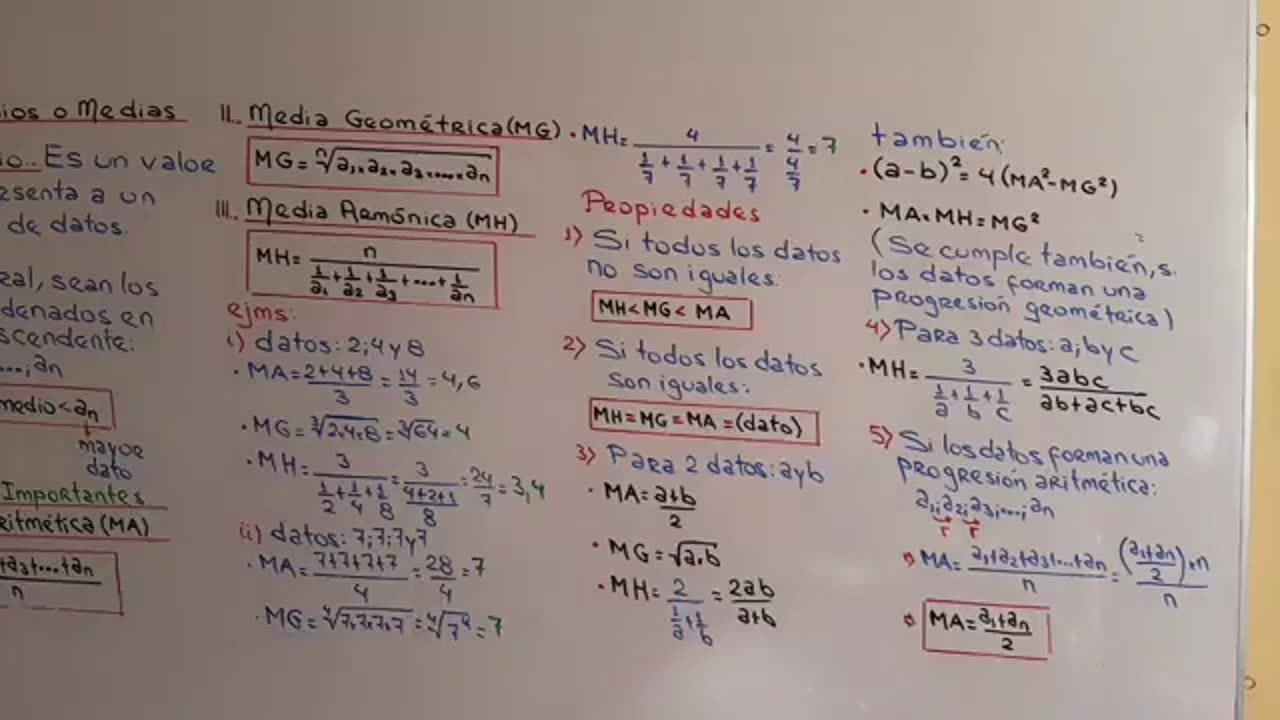 ios o Medias
io.. Es un valor
esenta a un
de datos.
ral, sean los
denados en
scendente:
...., an
medio < an
mayor
dato
Importantes
ritmética (MA)
+a3+...+an
n
II. Media Geométrica (MG)
MG = ⁿ√a1×a2×a3×....×an
III. Media Armónica (MH)
MH = n / (1/a1 + 1/a2 + 1/a3 + .... + 1/an)
ejms:
i) datos: 2; 4 y 8
• MA = (2+4+8)/3 = 14/3 = 4,6
• MG = ³√2×4×8 = ³√64 = 4
• MH = 3 / (1/2 + 1/4 + 1/8) = 3 / ((4+2+1)/8) = 24/7 = 3,4
ii) datos: 7; 7; 7 y 7
• MA = (7+7+7+7)/4 = 28/4 = 7
• MG = ⁴√7×7×7×7 = ⁴√7⁴ = 7
• MH = 4 / (1/7 + 1/7 + 1/7 + 1/7) = 4 / (4/7) = 7
Propiedades
1) Si todos los datos
no son iguales:
MH < MG < MA
2) Si todos los datos
son iguales:
MH = MG = MA = (dato)
3) Para 2 datos: a y b
• MA = (a+b)/2
• MG = √a×b
• MH = 2 / (1/a + 1/b) = 2ab/(a+b)
también:
• (a-b)² = 4(MA²-MG²)
• MA×MH = MG²
(Se cumple también, s.
los datos forman una
progresión geométrica)
4) Para 3 datos: a; b y c
• MH = 3 / (1/a + 1/b + 1/c) = 3abc/(ab+ac+bc)
5) Si los datos forman una
progresión aritmética:
a1; a2; a3; ....; an
r r
⇒ MA = (a1+a2+a3+...+an)/n = ((a1+an)/2)×n / n
⇒ MA = (a1+an)/2